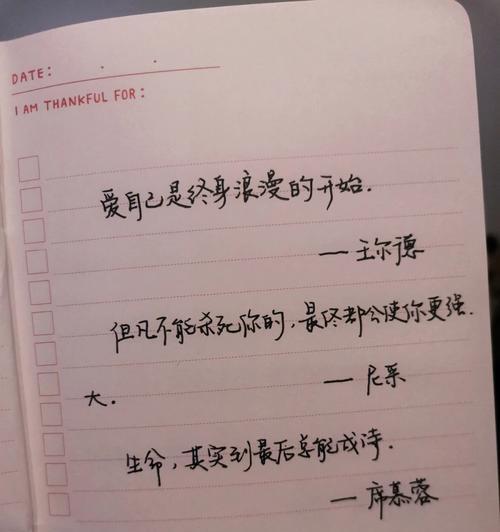 DATE: . .
I AM THANKFUL FOR:
爱自己是终身浪漫的开始.
—王尔德
但凡不能杀死你的,最终都会使你更强
大.
—尼采
生命,其实到最后总能成诗.
—席慕蓉